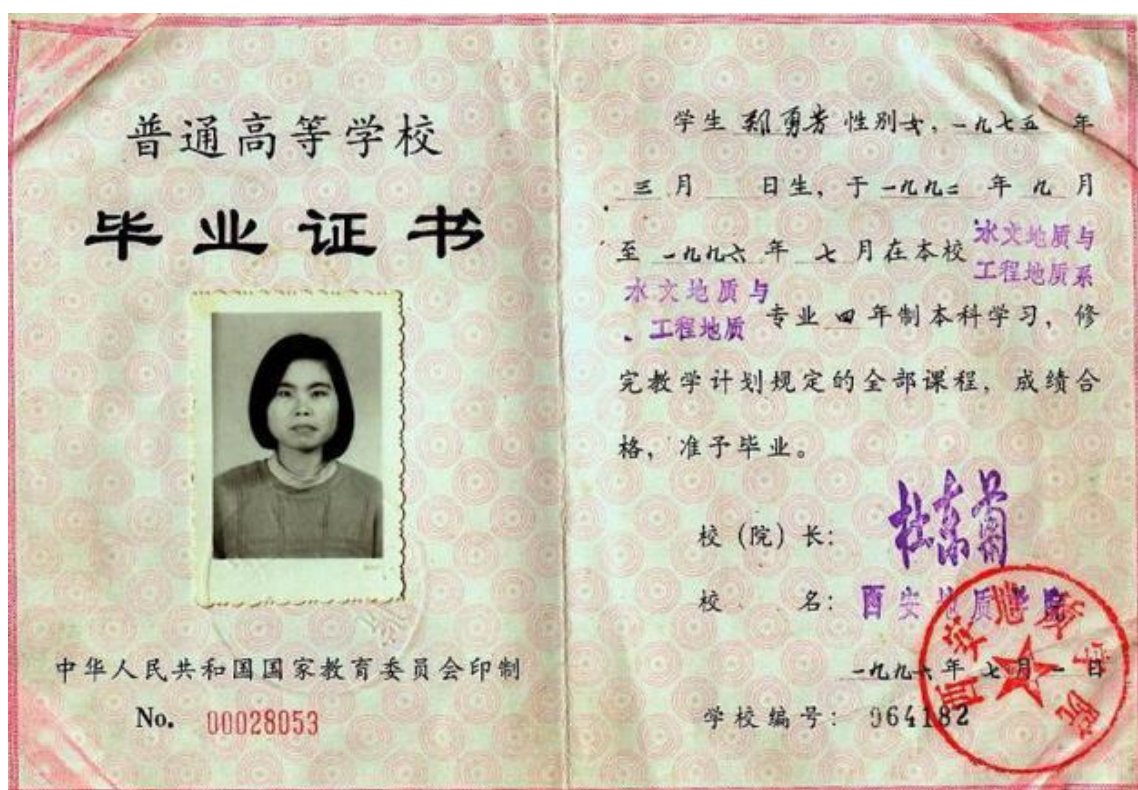 普通高等学校
毕业证书
中华人民共和国国家教育委员会印制
No. 00028053
学生 郑勇芳 性别女，一九七五 年
三月 日生，于一九九二 年 九 月
至 一九九六 年 七 月在本校 水文地质与工程地质系
水文地质与工程地质 专业 四 年制本科学习，修
完教学计划规定的全部课程，成绩合
格，准予毕业。
校（院）长：
校 名：西安地质学院
一九九六年 七月一日
学校编号：964182
西安地质学院